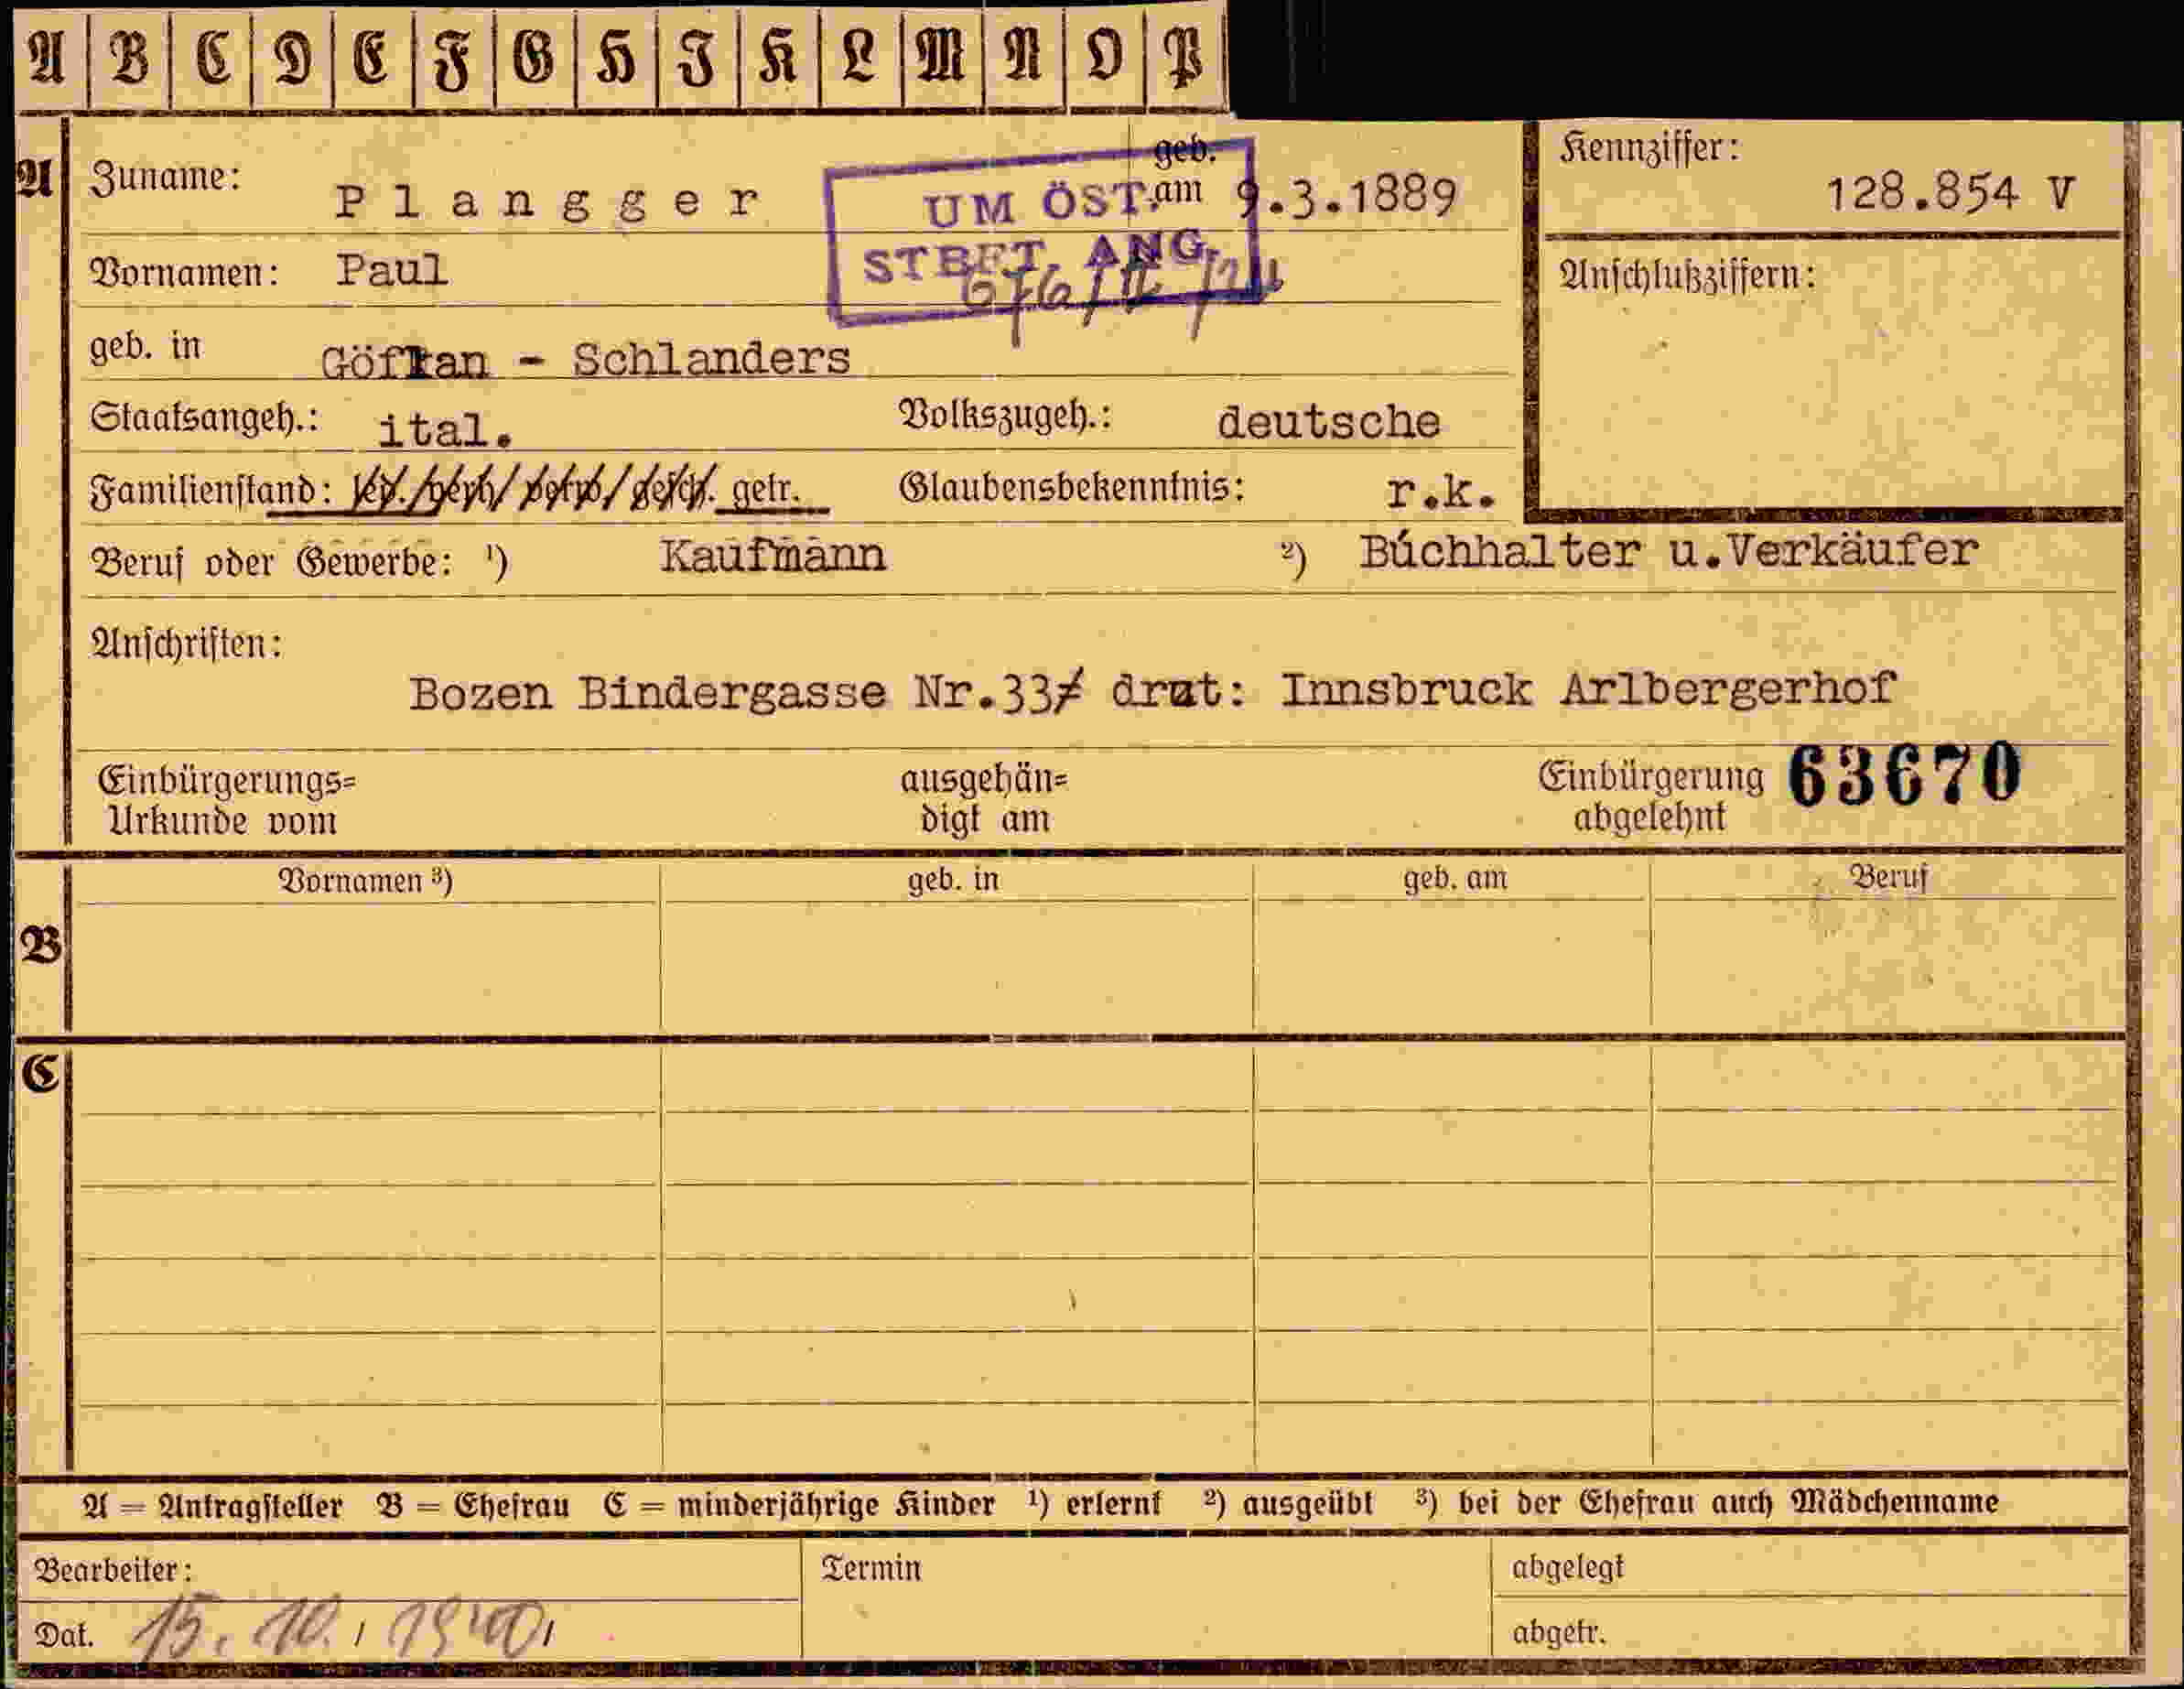 A B C D E F G H I K L M N O P
A
Zuname: Plangger
geb. am 9.3.1889
Kennziffer: 128.854 V
UM ÖST.
STBFT. ANG.
Vornamen: Paul
Anschlußziffern:
geb. in Göflan - Schlanders
Staatsangeh.: ital. Volkszugeh.: deutsche
Familienstand: led./verh/verw/gesch. getr. Glaubensbekenntnis: r.k.
Beruf oder Gewerbe: ¹) Kaufmann ²) Buchhalter u.Verkäufer
Anschriften:
Bozen Bindergasse Nr.33 Innsbruck Arlbergerhof
Einbürgerungs=
Urkunde vom
ausgehän=
digt am
Einbürgerung
abgelehnt
63670
B
Vornamen ³) geb. in geb. am Beruf
C
A = Antragsteller B = Ehefrau C = minderjährige Kinder ¹) erlernt ²) ausgeübt ³) bei der Ehefrau auch Mädchenname
Bearbeiter: Termin abgelegt
Dat. 15. 10. 1940 abgetr.